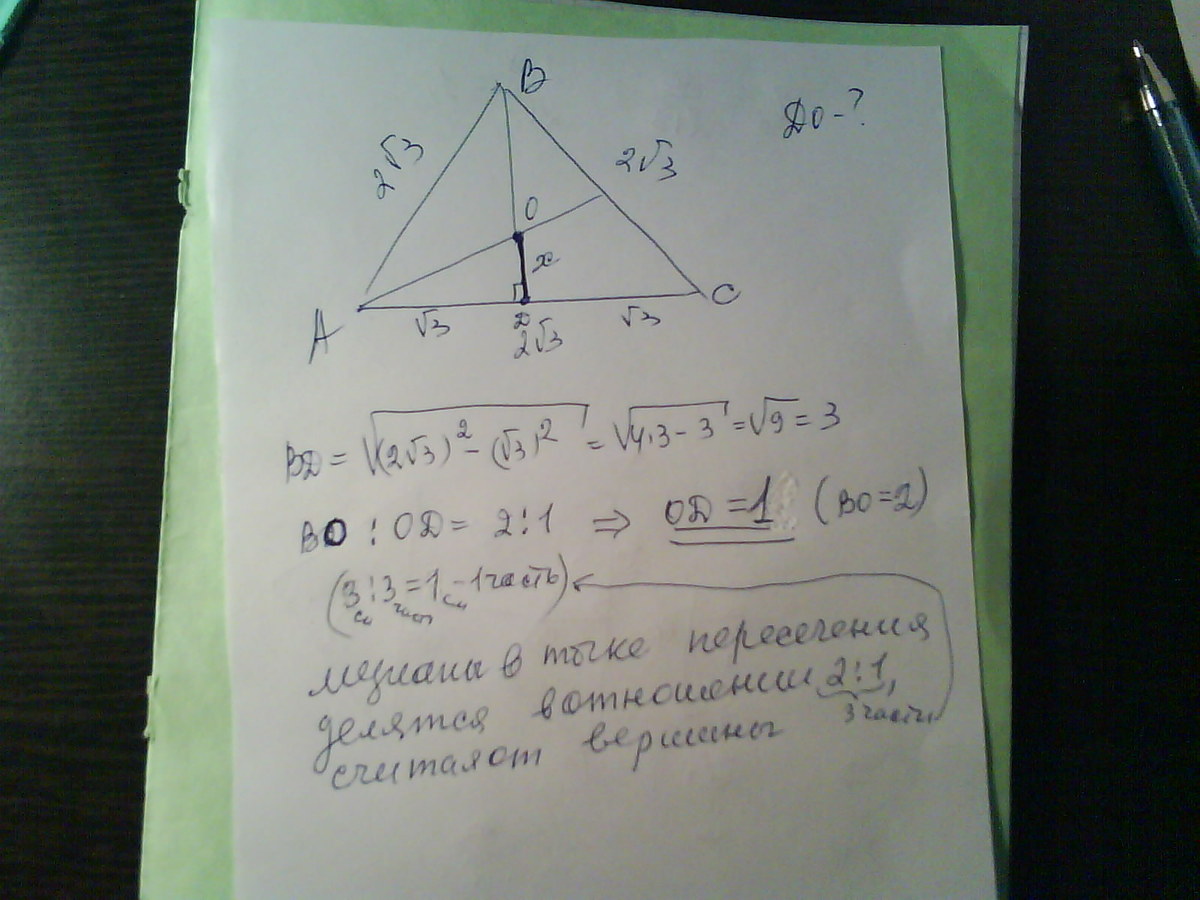 B
ДО-?
2√3
2√3
O
x
A
√3
D
√3
C
2√3
BD = √((2√3)² - (√3)²) = √(4·3 - 3) = √9 = 3
BO : OD = 2:1 ⇒ OD = 1 (BO=2)
(3 см : 3 части = 1 см - 1 часть)
медианы в точке пересечения
делятся в отношении 2:1,
3 части
считая от вершины